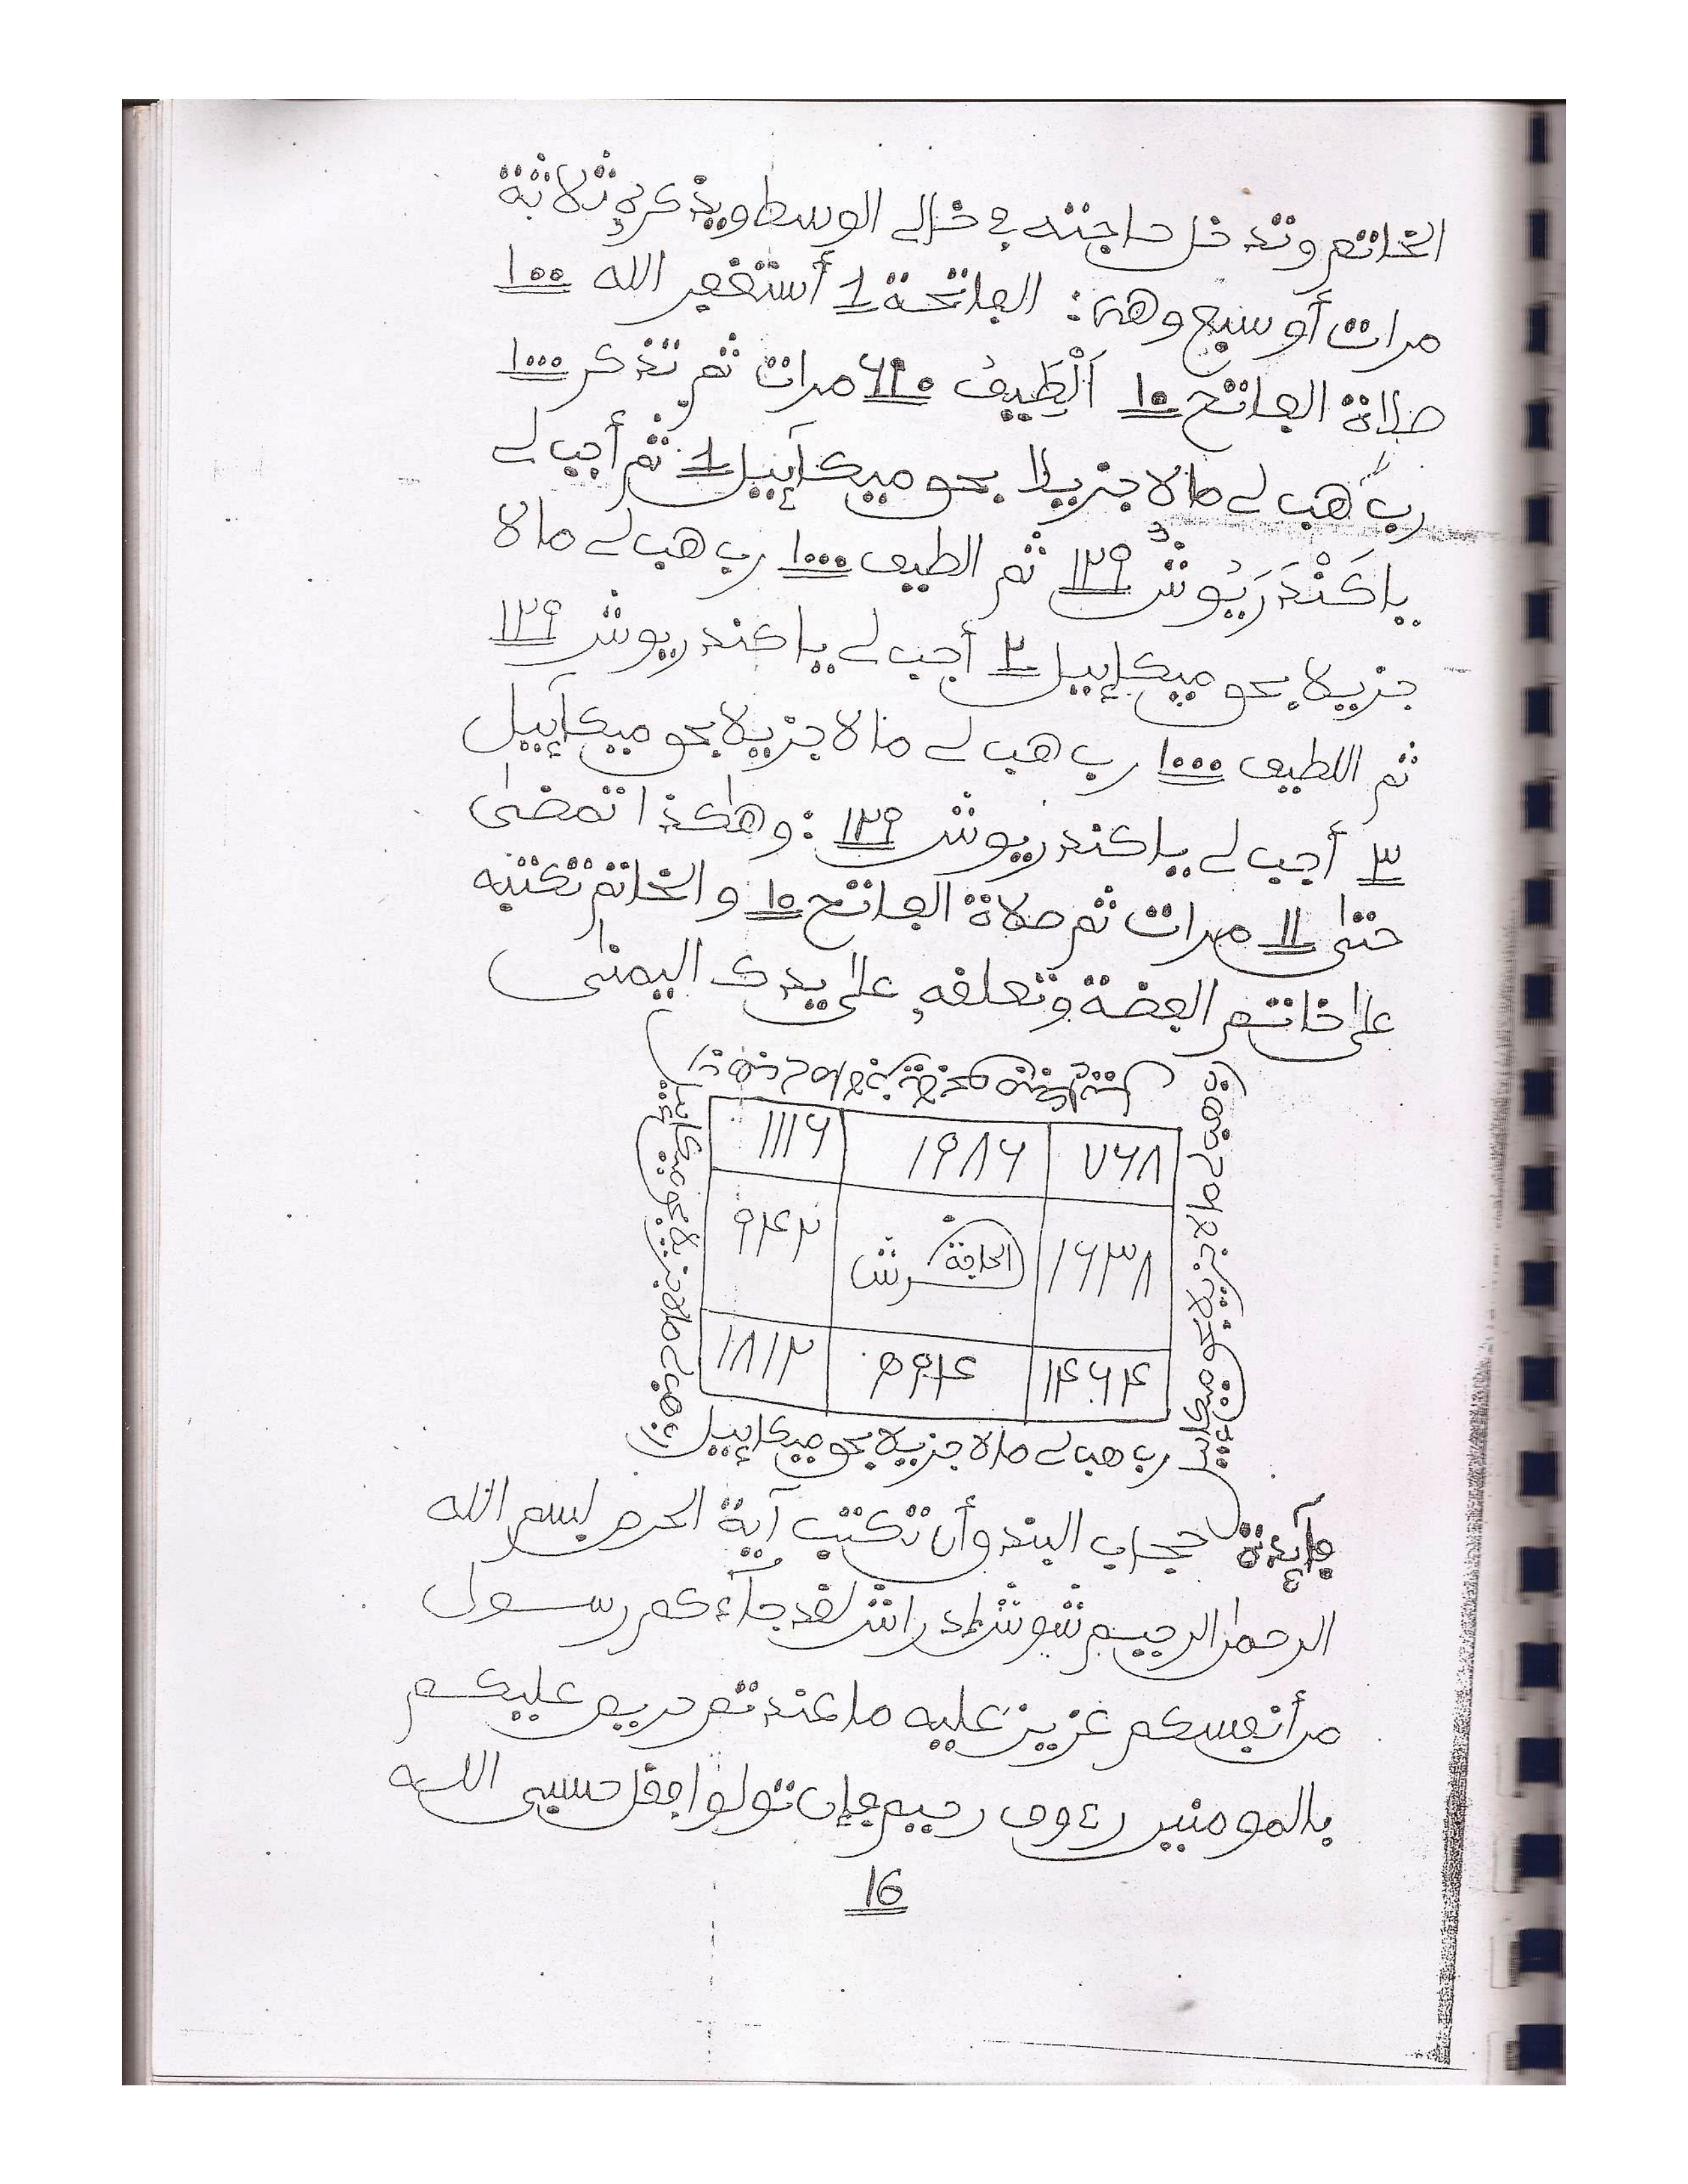 الخاتم وتدخل حاجته في خالي الوسط ويذكر ثلاثة
مرات أو سبع وهي: الفاتحة 1 أستغفر الله ١٠٠
صلاة الفاتح ١٠ اَلْطِيفُ مرات ثم تذكر ١٠٠٠
ربِّ هب لي مالا جزيلا بحق ميكآئيل 1 ثم أجب لي
ياكَنْدَرَيُوشُ ١٢٩ ثم الطيف ١٠٠٠ رب هب لي مالا
جزيلا بحق ميكائيل ٢ أجب لي ياكندريوش ١٢٩
ثم اللطيف ١٠٠٠ رب هب لي مالا جزيلا بحق ميكآئيل
٣ أجب لي ياكندريوش ١٢٩: وهاكذا تمضى
حتى ١١ مرات ثم صلاة الفاتح ١٠ والخاتم تكتبه
على خاتم الفضة وتعلقه على يدك اليمنى
٧٦٨ ١٩٨٦ ١١١٦
رب هب لي مالا جزيلا بحق ميكائيل
١٦٣٨ ٩٤٢
رب هب لي مالا جزيلا بحق ميكائيل
١٤٦٤ ١٨١٢
رب هب لي مالا جزيلا بحق ميكائيل
فآئدة حجاب البند وأن تكتب آية الحرص بسم الله
الرحمن الرحيم لقد جآءكم رسول
من أنفسكم عزيز عليه ما عندتم حريص عليكم
بالمومنين رءوف رحيم فإن تولوا فقل حسبي الله
16